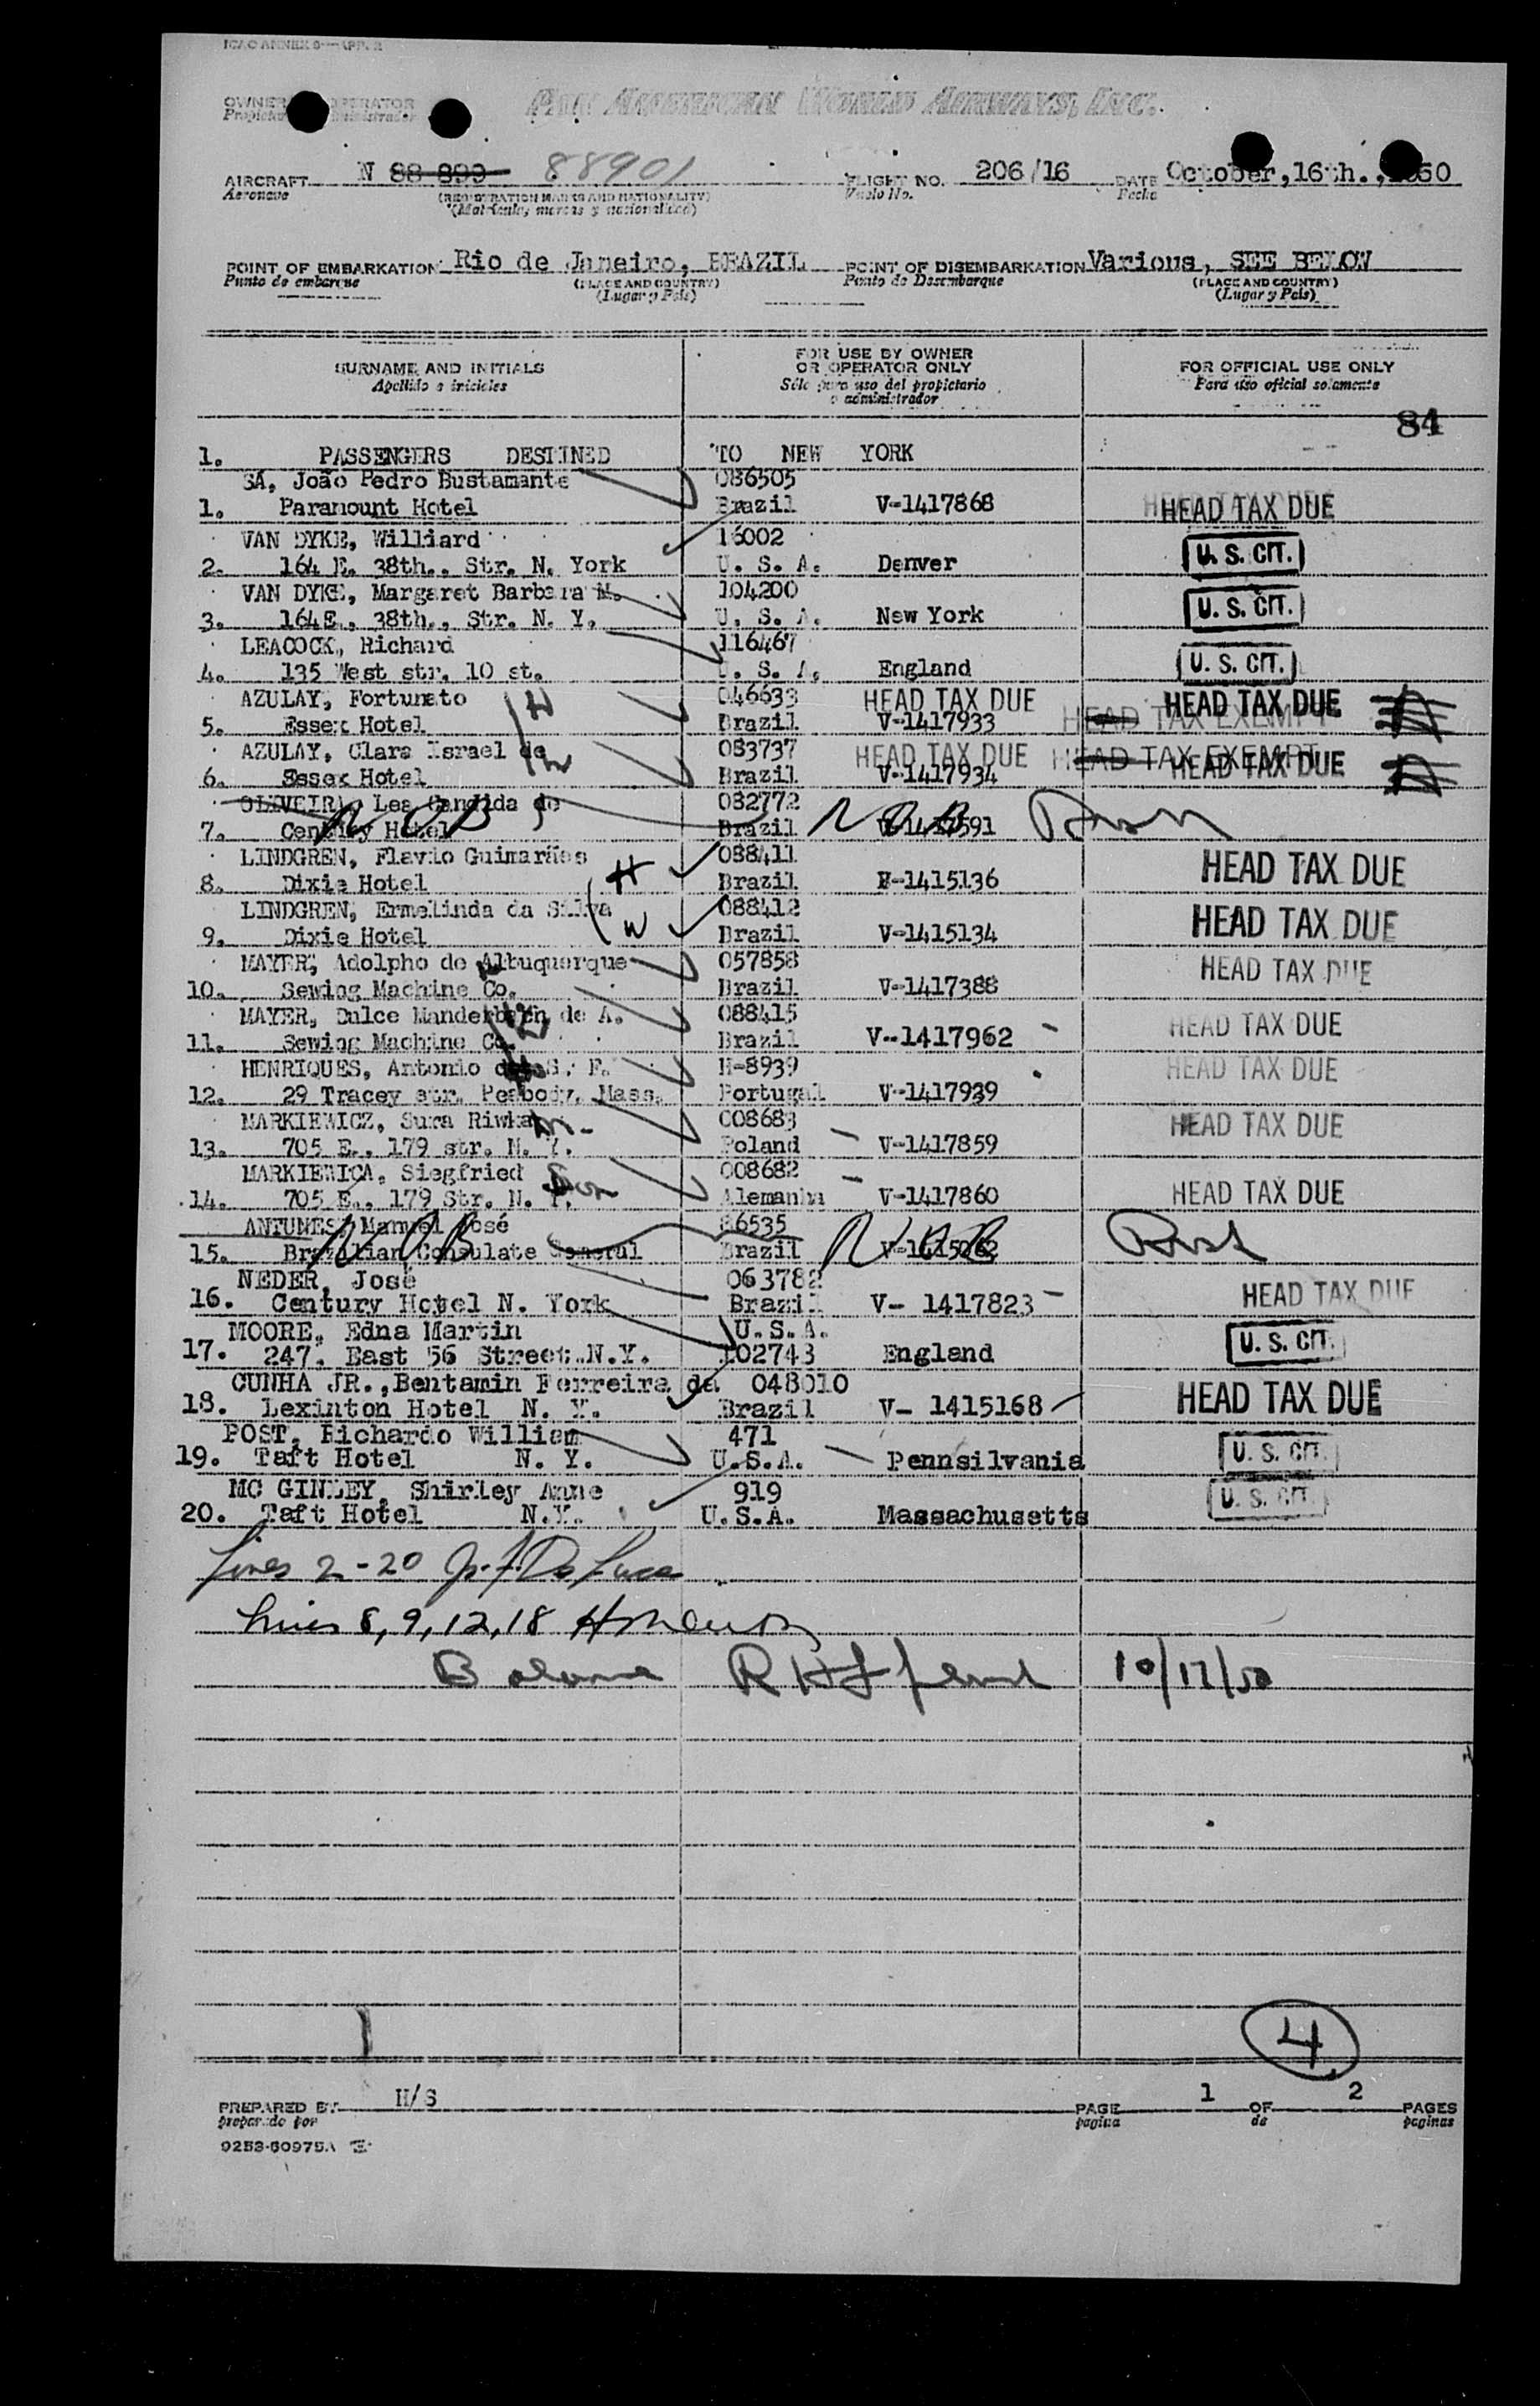 ICAO ANNEX 9—APP. 2
OWNER OPERATOR
PAN AMERICAN WORLD AIRWAYS, INC.
AIRCRAFT N 88 899 88901 FLIGHT NO. 206/16 DATE October,16th.,1950
Aeronave (REGISTRATION MARKS AND NATIONALITY) Vuelo No. Fecha
(Matrícula, marcas y nacionalidad)
POINT OF EMBARKATION Rio de Janeiro, BRAZIL POINT OF DISEMBARKATION Various, SEE BELOW
Punto de embarque (PLACE AND COUNTRY) Punto de Desembarque (PLACE AND COUNTRY)
(Lugar y País) (Lugar y País)
SURNAME AND INITIALS FOR USE BY OWNER OR OPERATOR ONLY FOR OFFICIAL USE ONLY
Apellido e iniciales Sólo para uso del propietario o administrador Para uso oficial solamente
84
1. PASSENGERS DESTINED TO NEW YORK
SÁ, João Pedro Bustamante 086505
1. Paramount Hotel Brazil V-1417868 HEAD TAX DUE
VAN DYKE, Williard 16002
2. 164 E. 38th., Str. N. York U. S. A. Denver U. S. CIT.
VAN DYKE, Margaret Barbara M. 104200
3. 164E., 38th., Str. N. Y. U. S. A. New York U. S. CIT.
LEACOCK, Richard 116467
4. 135 West str. 10 st. U. S. A. England U. S. CIT.
AZULAY, Fortunato H 046633 HEAD TAX DUE HEAD TAX DUE
5. Essex Hotel Brazil V-1417933 HEAD TAX EXEMPT
AZULAY, Clara Israel de W 083737 HEAD TAX DUE HEAD TAX EXEMPT
6. Essex Hotel Brazil V-1417934 HEAD TAX DUE
OLIVEIRA, Lea Candida de 082772
7. Century Hotel N O B Brazil N O B V-1417591
LINDGREN, Flavio Guimarães H 088411
8. Dixie Hotel Brazil V-1415136 HEAD TAX DUE
LINDGREN, Ermelinda da Silva 088412
9. Dixie Hotel W Brazil V-1415134 HEAD TAX DUE
MAYER, Adolpho de Albuquerque 057858
10. Sewing Machine Co. Brazil V-1417388 HEAD TAX DUE
MAYER, Dulce Manderbach de A. 088415
11. Sewing Machine Co. Brazil V-1417962 HEAD TAX DUE
HENRIQUES, Antonio S. F. H-8939
12. 29 Tracey str. Peabody, Mass. Portugal V-1417939 HEAD TAX DUE
MARKIEWICZ, Sura Riwka 008683
13. 705 E., 179 str. N. Y. Poland V-1417859 HEAD TAX DUE
MARKIEWICA, Siegfried Son 008682
14. 705 E., 179 Str. N. Y. Alemanha V-1417860 HEAD TAX DUE
ANTUNES, Manuel José 86535
15. Brazilian Consulate General N O B Brazil N O B
NEDER, José 063782
16. Century Hotel N. York Brazil V- 1417823 HEAD TAX DUE
MOORE, Edna Martin U.S.A.
17. 247. East 56 Street.N.Y. 102743 England U. S. CIT.
CUNHA JR.,Bentamin Ferreira da 048010
18. Lexinton Hotel N. Y. Brazil V- 1415168 HEAD TAX DUE
POST, Richardo William 471
19. Taft Hotel N. Y. U.S.A. Pennsilvania U. S. CIT.
MC GINLEY, Shirley Anne 919
20. Taft Hotel N.Y. U.S.A. Massachusetts U. S. CIT.
Lines 2-20
Lines 8,9,12,18
10/17/50
4
PREPARED BY H/S PAGE 1 OF 2 PAGES
preparado por pagina de paginas
9253-60975A